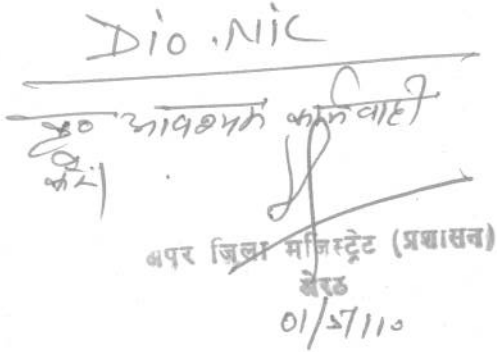 DIO.NIC
कृ० आवश्यक कार्यवाही
करें।
अपर जिला मजिस्ट्रेट (प्रशासन)
मेरठ